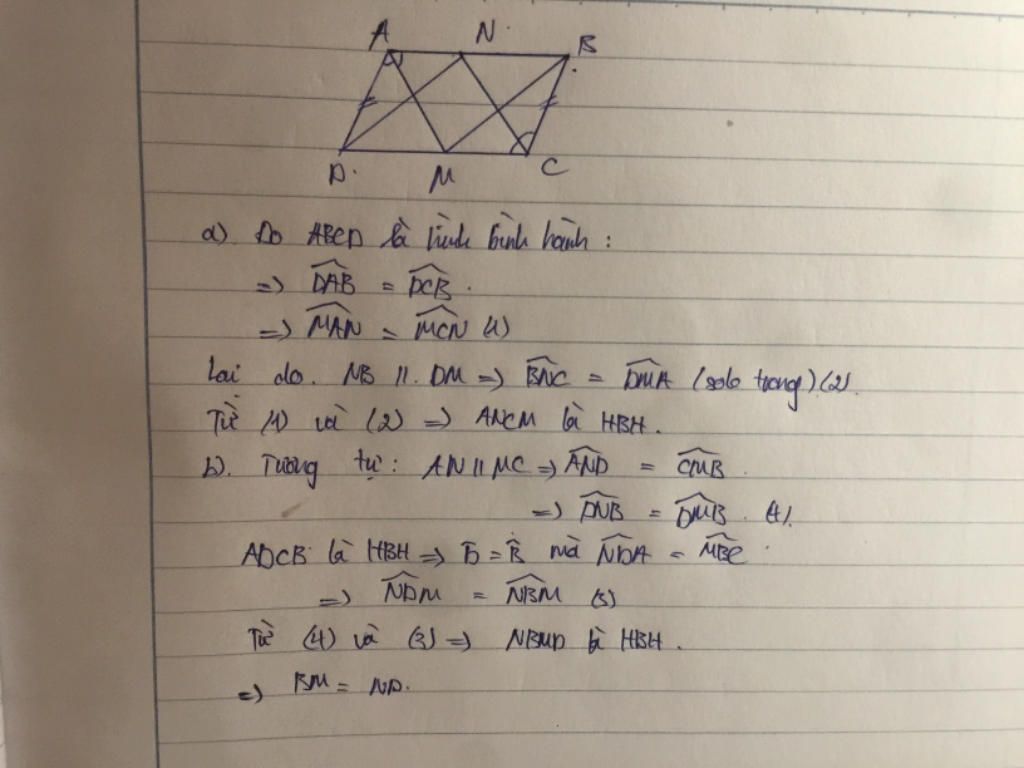 A N B
D M C
a) Do ABCD là hình bình hành :
=> \widehat{DAB} = \widehat{DCB}.
=> \widehat{MAN} = \widehat{MCN} (1)
Lại do. NB // DM => \widehat{BNC} = \widehat{DMA} (sole trong) (2).
Từ (1) và (2) => ANCM là HBH.
b). Tương tự: AN // MC => \widehat{AND} = \widehat{CMB}.
=> \widehat{DNB} = \widehat{DMB}. (4).
ADCB là HBH => \widehat{D} = \widehat{B} mà \widehat{NDA} = \widehat{MBC}.
=> \widehat{NDM} = \widehat{NBM} (3)
Từ (4) và (3) => NBMD là HBH.
=> BM = ND.